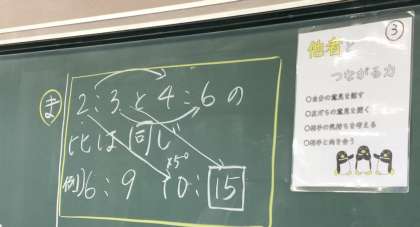 ま
2:3と4:6の
比は同じ
×5
例)6:9 10:15
③
他者と
つながる力
○自分の意見を話す
○友だちの意見を聞く
○相手の気持ちを考える
○相手と向き合う